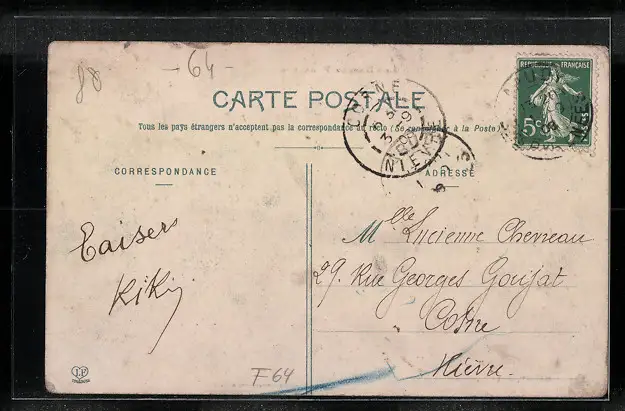 88
-64-
RÉPUBLIQUE FRANÇAISE
5c
POSTES
CARTE POSTALE
Tous les pays étrangers n'acceptent pas la correspondance au recto (Se renseigner à la Poste)
NIEVRE
CORRESPONDANCE
ADRESSE
Baisers
Kiki
Mlle Lucienne Chevreau
29. Rue Georges Goujat
Cosne
Nièvre.
F64